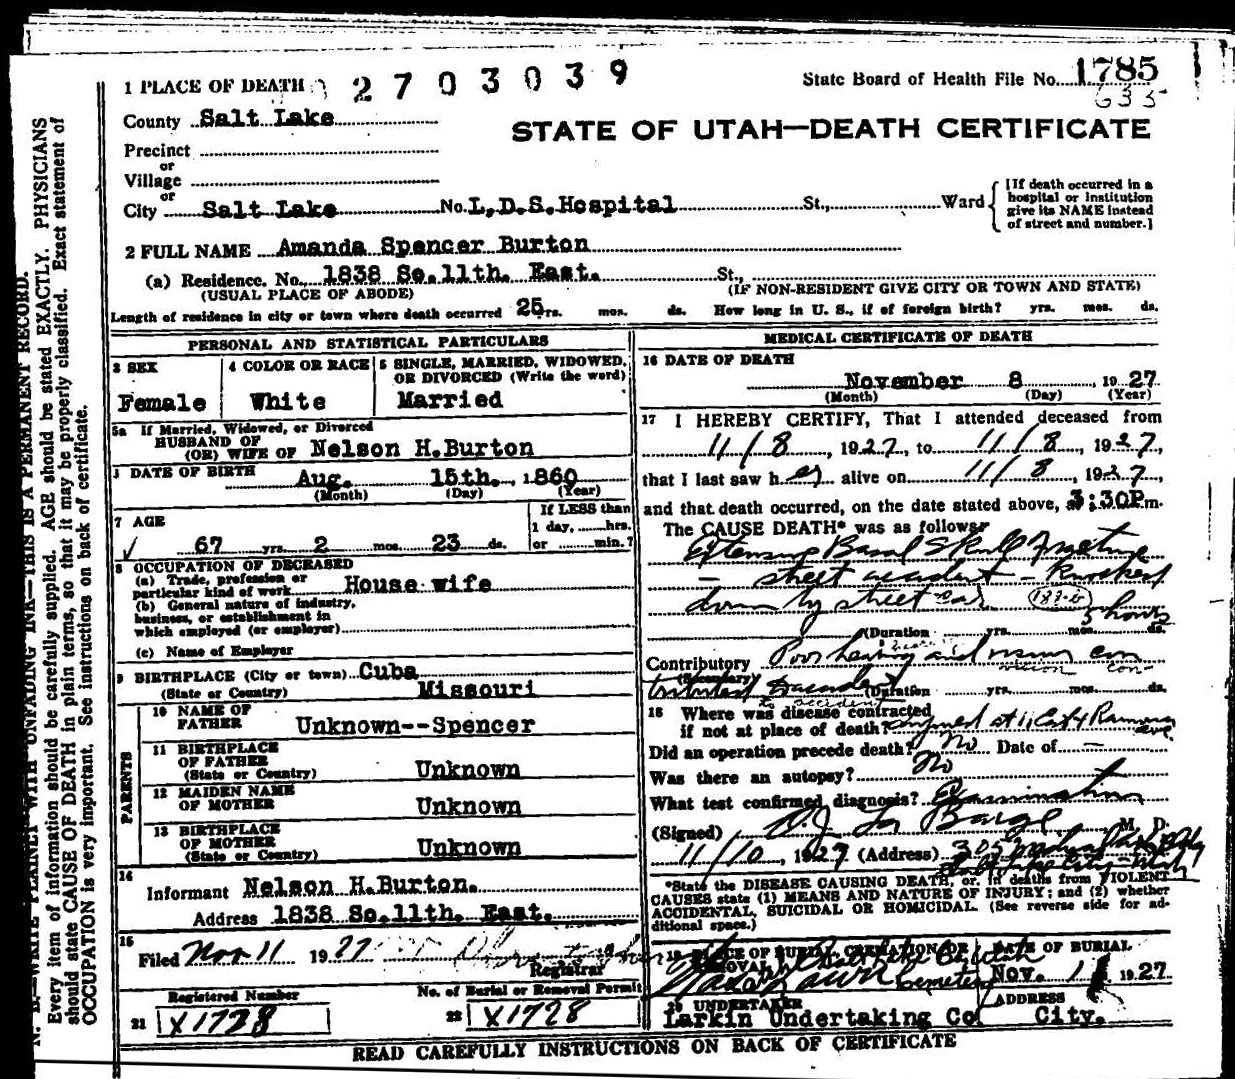 1 PLACE OF DEATH 2703039
State Board of Health File No. 1785
635
County Salt Lake
STATE OF UTAH—DEATH CERTIFICATE
Precinct
or
Village
or
City Salt Lake No. L.D.S.Hospital St., Ward
[If death occurred in a hospital or institution give its NAME instead of street and number.]
2 FULL NAME Amanda Spencer Burton
(a) Residence. No. 1838 So.11th. East. St.,
(USUAL PLACE OF ABODE) (IF NON-RESIDENT GIVE CITY OR TOWN AND STATE)
Length of residence in city or town where death occurred 25 yrs. mos. ds. How long in U. S., if of foreign birth? yrs. mos. ds.
PERSONAL AND STATISTICAL PARTICULARS
3 SEX
Female
4 COLOR OR RACE
White
5 SINGLE, MARRIED, WIDOWED, OR DIVORCED (Write the word)
Married
5a If Married, Widowed, or Divorced
HUSBAND OF
(OR) WIFE OF Nelson H.Burton
DATE OF BIRTH Aug. 15th. , 1860
(Month) (Day) (Year)
7 AGE
67 yrs. 2 mos. 23 ds.
If LESS than
1 day, hrs.
or min.?
8 OCCUPATION OF DECEASED
(a) Trade, profession or
particular kind of work House wife
(b) General nature of industry,
business, or establishment in
which employed (or employer)
(c) Name of Employer
9 BIRTHPLACE (City or town) Cuba
(State or Country) Missouri
PARENTS
10 NAME OF
FATHER Unknown--Spencer
11 BIRTHPLACE
OF FATHER
(State or Country) Unknown
12 MAIDEN NAME
OF MOTHER Unknown
13 BIRTHPLACE
OF MOTHER
(State or Country) Unknown
14
Informant Nelson H.Burton.
Address 1838 So.11th. East.
15
Filed Nov 11 1927
Registrar
Registered Number
21 X1728
No. of Burial or Removal Permit
22 X1728
MEDICAL CERTIFICATE OF DEATH
16 DATE OF DEATH
November 8 , 1927
(Month) (Day) (Year)
17 I HEREBY CERTIFY, That I attended deceased from
11/8 , 1927, to 11/8, 1927,
that I last saw her alive on 11/8, 1927,
and that death occurred, on the date stated above, at 3:30P m.
The CAUSE DEATH* was as follows:
Extensive Basal Skull Fracture
— street accident — Knocked
down by street car 188-6
5 hours
(Duration yrs. mos. ds.
Contributory Poor hearing and vision con
(Secondary) tributed to accident
(Duration yrs. mos. ds.
18 Where was disease contracted
if not at place of death? at 11 East & Ramona ave.
Did an operation precede death? No Date of —
Was there an autopsy? No
What test confirmed diagnosis? Examination
(Signed) La Barge M. D.
11/10, 1927 (Address) 305
Salt Lake City - Utah
*State the DISEASE CAUSING DEATH, or, in deaths from VIOLENT
CAUSES state (1) MEANS AND NATURE OF INJURY; and (2) whether
ACCIDENTAL, SUICIDAL OR HOMICIDAL. (See reverse side for ad-
ditional space.)
19 PLACE OF BURIAL, CREMATION OR REMOVAL
Salt Lake City Utah
Lawn Cemetery
DATE OF BURIAL
Nov. 11 1927
20 UNDERTAKER
Larkin Undertaking Co
ADDRESS
City.
READ CAREFULLY INSTRUCTIONS ON BACK OF CERTIFICATE
N. B.—WRITE PLAINLY WITH UNFADING INK—THIS IS A PERMANENT RECORD.
Every item of information should be carefully supplied. AGE should be stated EXACTLY. PHYSICIANS
should state CAUSE OF DEATH in plain terms, so that it may be properly classified. Exact statement of
OCCUPATION is very important. See instructions on back of certificate.